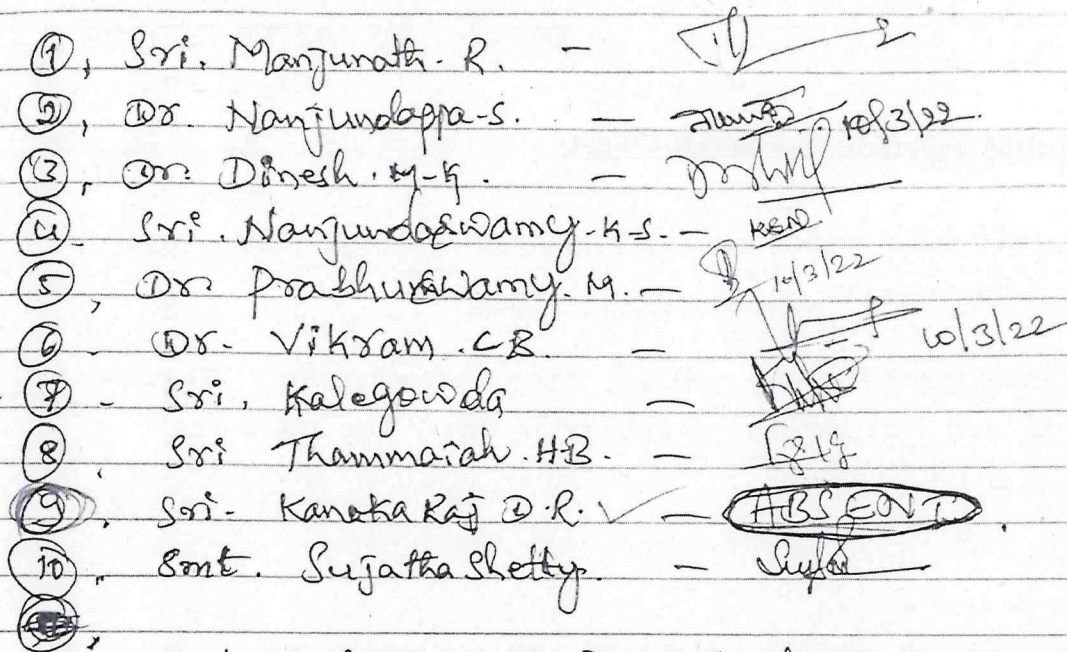 ①, Sri. Manjunath. R. -
②, Dr. Nanjundappa-S. - 10/3/22.
③, Dr. Dinesh. M-K. -
④- Sri. Nanjundaswamy-K-S. - KSN
⑤, Dr. Prabhuswamy. M. - 10/3/22
⑥- Dr- Vikram. C B. - 10/3/22
⑦- Sri, Kalegowda -
⑧. Sri Thammaiah. H.B. -
⑨. Sri- Kanaka Raj D.R. ✓ - ABSENT.
⑩. Smt. Sujatha Shetty. -